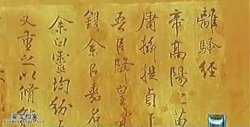 離騷經
帝高陽之苗
庸攝提貞于
吾以降皇
錫余以嘉名
余曰靈均紛
又重之以脩能